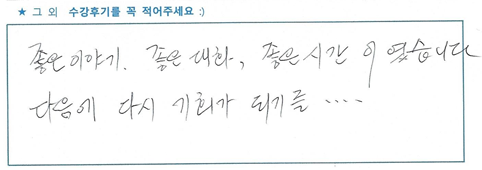 ★ 그 외 수강후기를 꼭 적어주세요 :)
좋은 이야기. 좋은 대화, 좋은 시간 이 였습니다
다음에 다시 기회가 되기를 ....